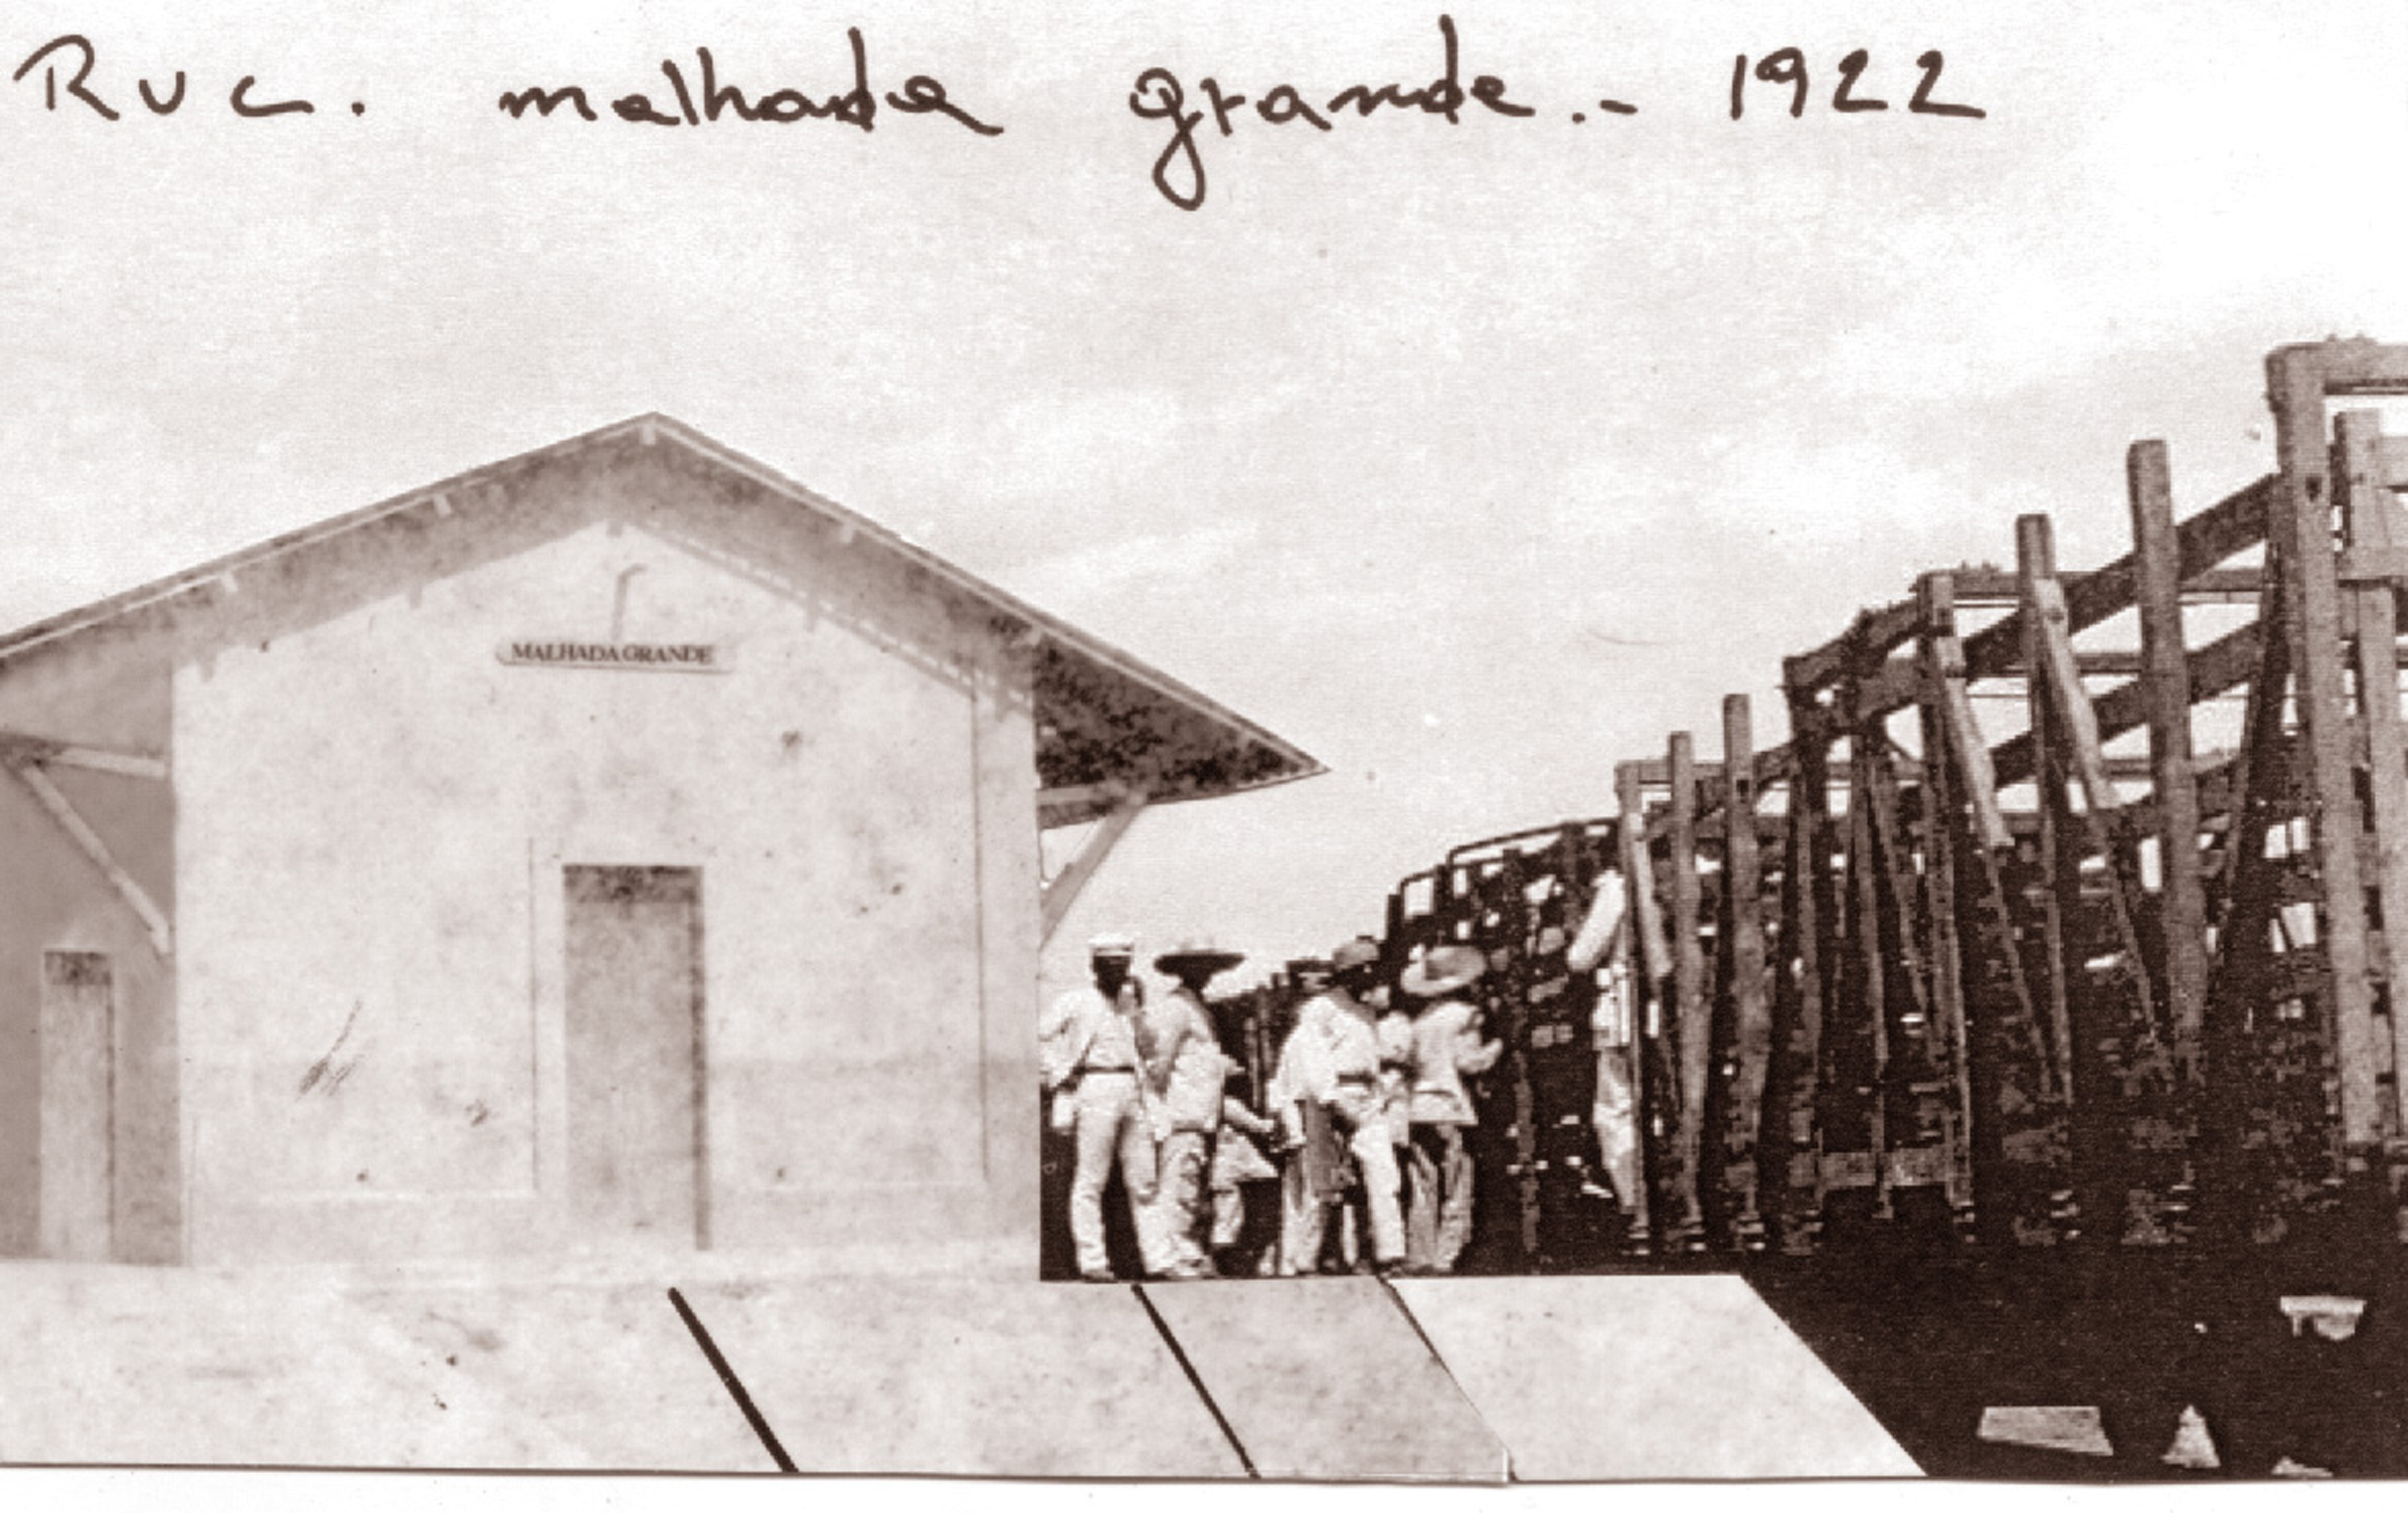 RVC. malhada grande.- 1922
MALHADA GRANDE